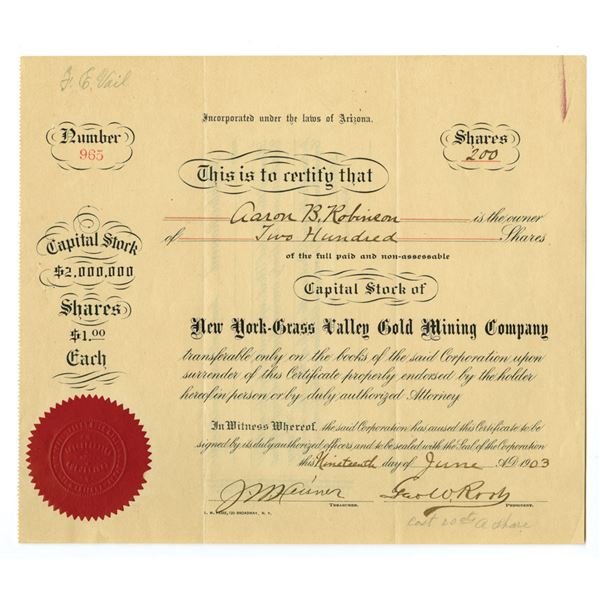 F. E. Vail
Incorporated under the laws of Arizona.
Number
965
Shares
200
This is to certify that
Aaron B. Robinson is the owner
of Two Hundred Shares
of the full paid and non-assessable
Capital Stock
$2,000,000
Shares
$1.00
Each
Capital Stock of
New York-Grass Valley Gold Mining Company
transferable only on the books of the said Corporation upon
surrender of this Certificate properly endorsed by the holder
hereof in person or by duly authorized Attorney
In Witness Whereof, the said Corporation has caused this Certificate to be
signed by its duly authorized officers and to be sealed with the Seal of the Corporation
this Nineteenth day of June A.D. 1903
Geo W. Root
TREASURER.
PRESIDENT.
120 BROADWAY, N. Y.
cost 20cts A share